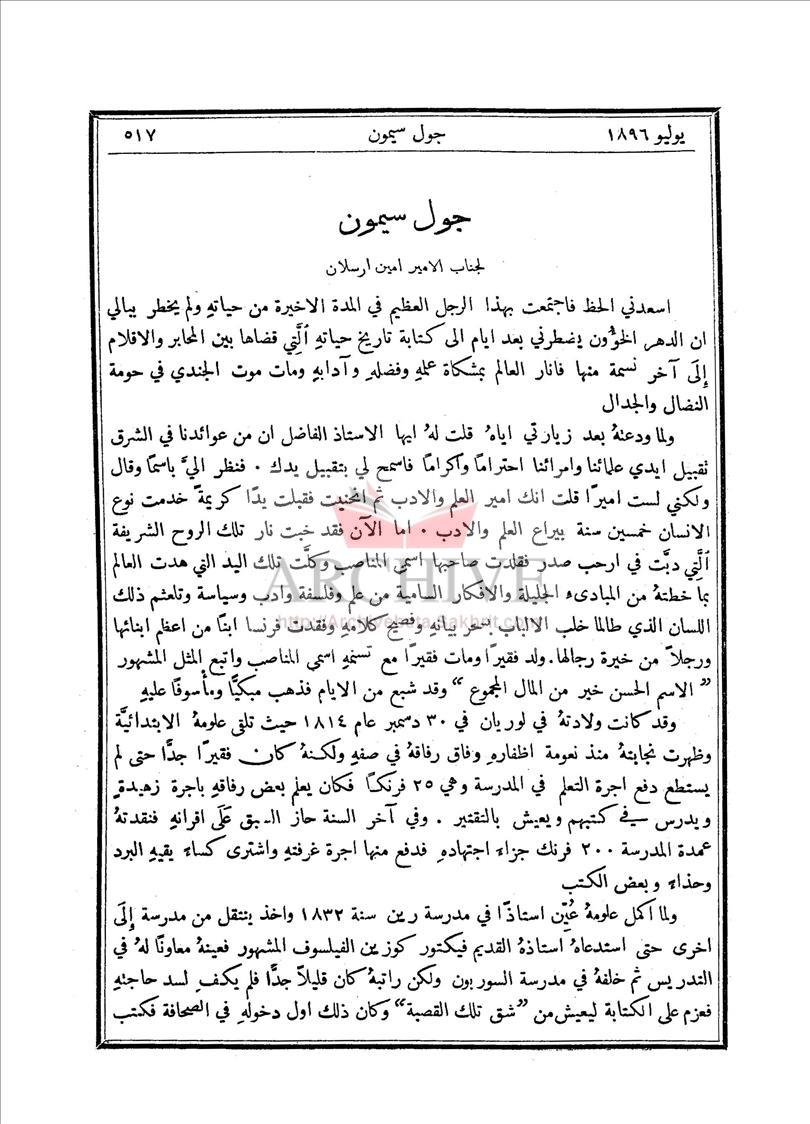 يوليو ١٨٩٦ جول سيمون ٥١٧
جول سيمون
لجناب الامير امين ارسلان
اسعدني الحظ فاجتمعت بهذا الرجل العظيم في المدة الاخيرة من حياتهِ ولم يخطر ببالي
ان الدهر الخؤون يضطرني بعد ايام الى كتابة تاريخ حياتهِ الَّتي قضاها بين المحابر والاقلام
إِلَى آخر نسمة منها فانار العالم بمشكاة عملهِ وفضلهِ وآدابهِ ومات موت الجندي في حومة
النضال والجدال
ولما ودعتهُ بعد زيارتي اياهُ قلت لهُ ايها الاستاذ الفاضل ان من عوائدنا في الشرق
نقبيل ايدي علمائنا وامرائنا احتراماً واكراماً فاسمح لي بتقبيل يدك ٠ فنظر اليَّ باسماً وقال
ولكني لست اميرًا قلت انك امير العلم والادب ثم انحنيت فقبلت يدًا كريمةً خدمت نوع
الانسان خمسين سنة بيراع العلم والادب ٠ اما الآن فقد خبت نار تلك الروح الشريفة
الَّتي دبَّت في ارحب صدر فقلدت صاحبها اسمى المناصب وكلَّت تلك اليد التي هدت العالم
بما خطتهُ من المبادىء الجليلة والافكار السامية من علم وفلسفة وادب وسياسة وتلعثم ذلك
اللسان الذي طالما خلب الالباب بسحر بيانهِ وفصيح كلامهِ وفقدت فرنسا ابنًا من اعظم ابنائها
ورجلاً من خيرة رجالها. ولد فقيرًا ومات فقيرًا مع تسنمهِ اسمى المناصب واتبع المثل المشهور
"الاسم الحسن خير من المال المجموع" وقد شبع من الايام فذهب مبكيًّا ومأسوفًا عليهِ
وقد كانت ولادتهُ في لوريان في ٣٠ دسمبر عام ١٨١٤ حيث تلقى علومهُ الابتدائيَّة
وظهرت نجابتهُ منذ نعومة اظفارهِ وفاق رفاقهُ في صفهِ ولكنهُ كان فقيرًا جدًّا حتى لم
يستطع دفع اجرة التعلم في المدرسة وهي ٢٥ فرنكًا فكان يعلم بعض رفاقهِ باجرة زهيدة
ويدرس في كتبهم ويعيش بالتقتير . وفي آخر السنة حاز السبق عَلَى اقرانهِ فنقدتهُ
عمدة المدرسة ٢٠٠ فرنك جزاء اجتهادهِ فدفع منها اجرة غرفتهِ واشترى كساء يقيهِ البرد
وحذاء وبعض الكتب
ولما اكمل علومهُ عُيِّن استاذًا في مدرسة رين سنة ١٨٣٢ واخذ ينتقل من مدرسة إِلَى
اخرى حتى استدعاهُ استاذهُ القديم فيكتور كوزين الفيلسوف المشهور فعينهُ معاونًا لهُ في
التدريس ثم خلفهُ في مدرسة السوربون ولكن راتبهُ كان قليلاً جدًّا فلم يكف لسد حاجتهِ
فعزم على الكتابة ليعيش من "شق تلك القصبة" وكان ذلك اول دخولهِ في الصحافة فكتب
ARCHIVE